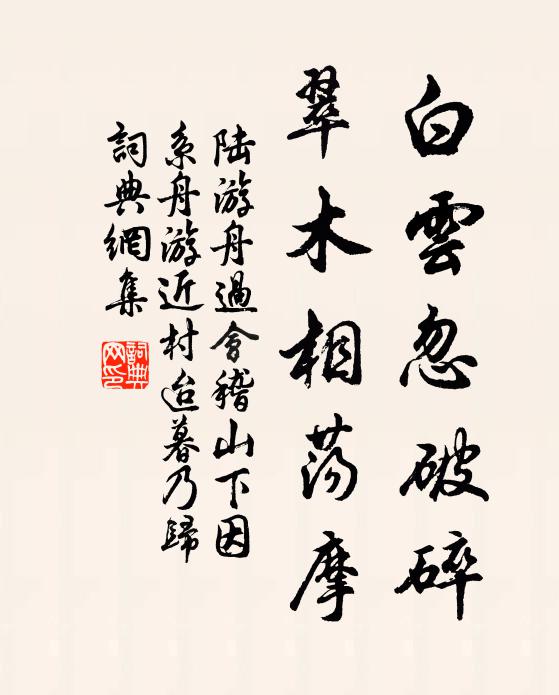 白雲忽破碎
翠木相荡摩
陆游舟過會稽山下因
系舟游近村迨暮乃歸
詞典網集
詞典
网印